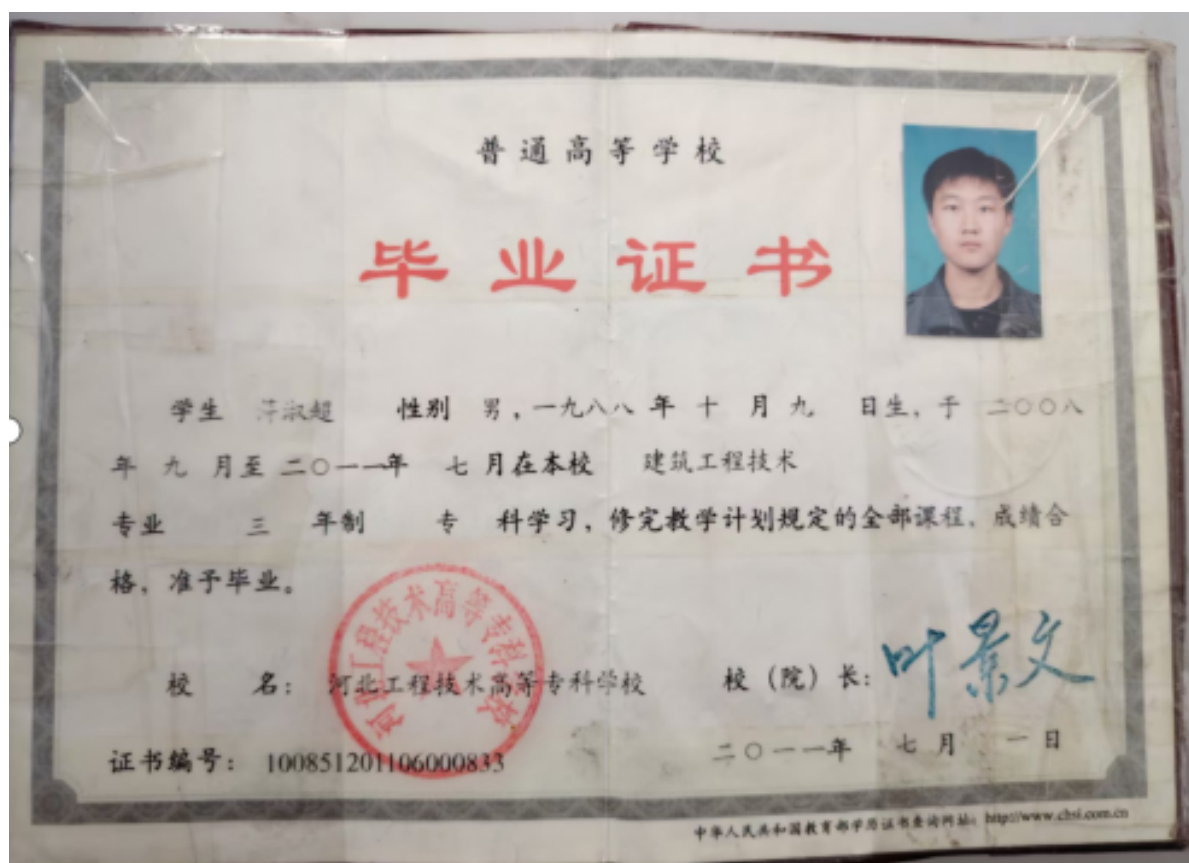 普通高等学校
毕业证书
学生 淑超 性别 男，一九八八 年 十 月 九 日生，于 二〇〇八
年 九 月至 二〇一一年 七 月在本校 建筑工程技术
专业 三 年制 专 科学习，修完教学计划规定的全部课程，成绩合
格，准予毕业。
河北工程技术高等专科学校
校 名： 河北工程技术高等专科学校 校（院）长： 叶景文
证书编号： 100851201106000833 二〇一一年 七 月 一 日
中华人民共和国教育部学历证书查询网址：http://www.chsi.com.cn